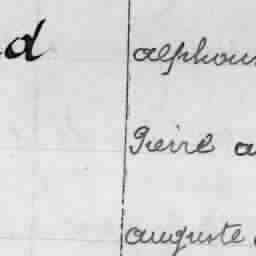 d alphons
Pierre a
auguste